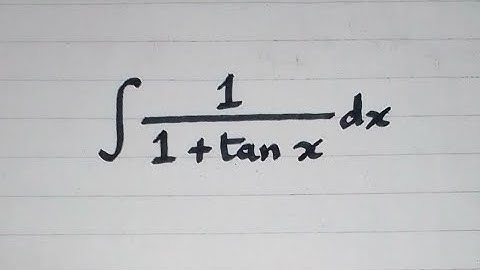 ∫ 1/(1 + tan x) dx